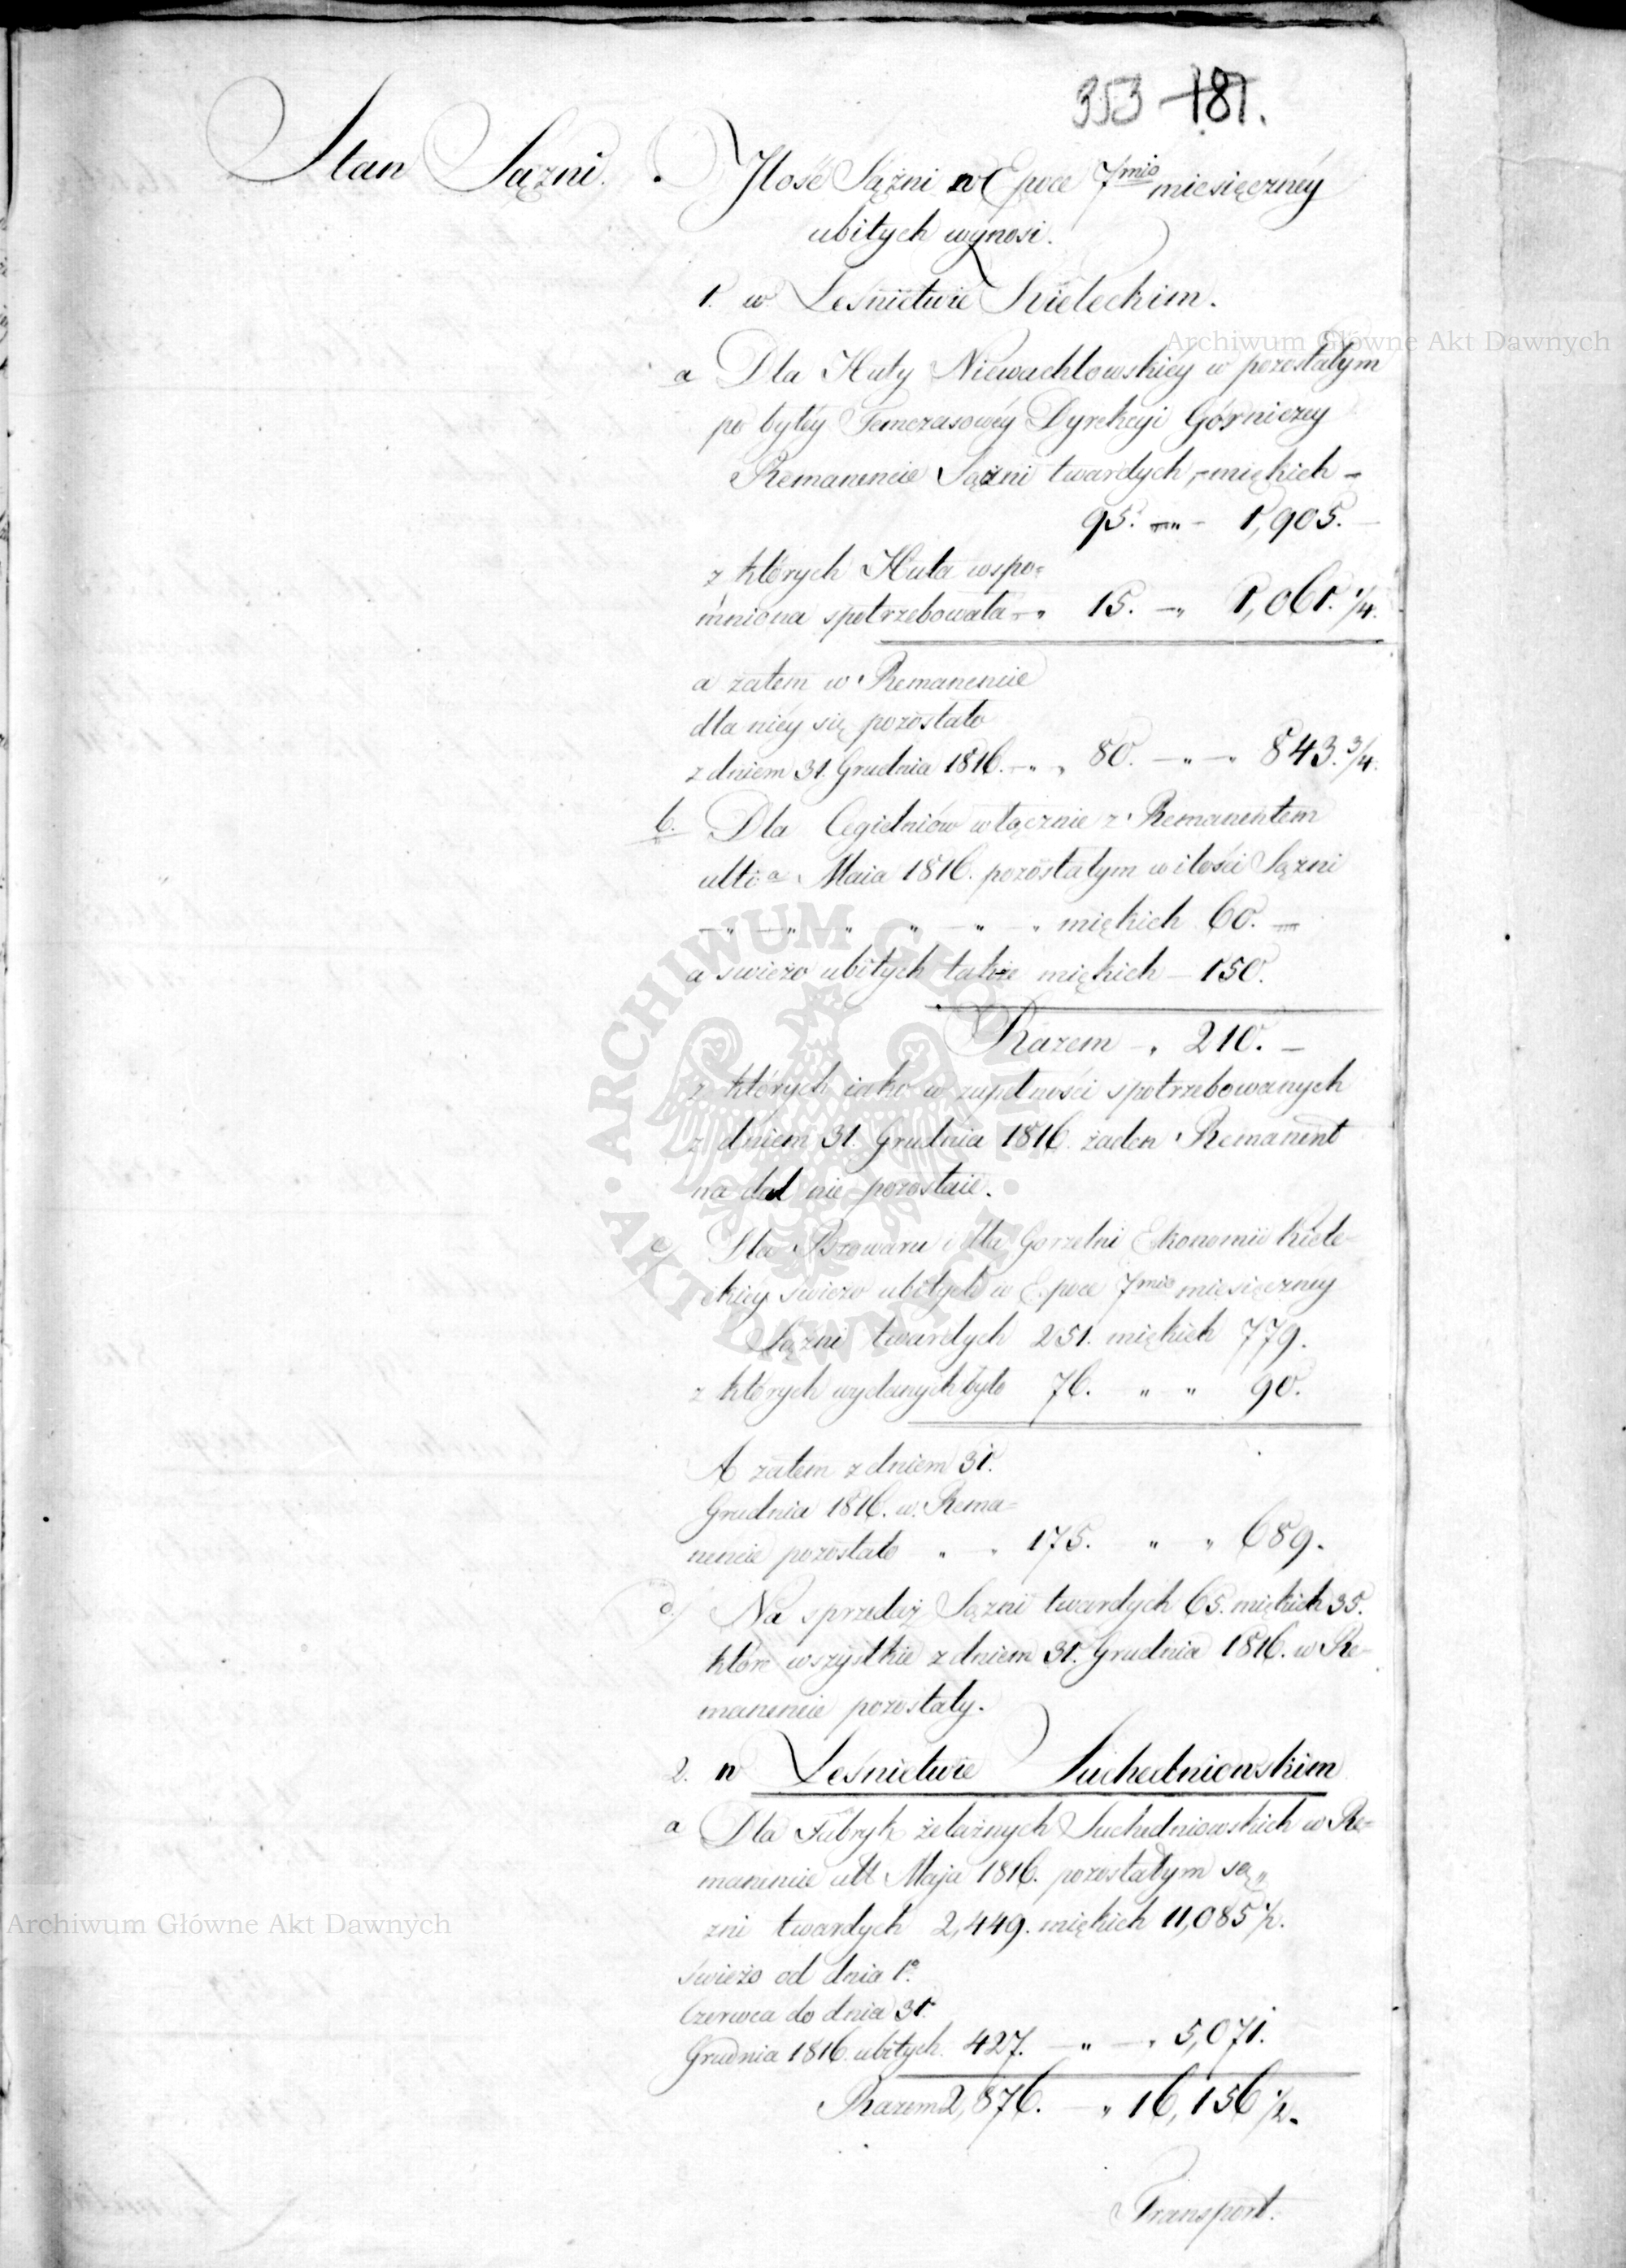 353 181.
Stan Sążni. Ilość Sążni w Epoce 7mio miesięczney
ubitych wynosi.
1. w Leśnictwie Kieleckim.
Archiwum Główne Akt Dawnych
a Dla Huty Niewachlowskiéy w pozostałym
po byłéy Temczasowéy Dyrekcyi Górniczey
Remanencie Sążni twardych, - miękich -
95. - " - 1,905. -
z których Huta wspo=
mniona spotrzebowała - " 15. - " 1,061. 1/4.
a zatem w Remanencie
dla niéy się pozostało
z dniem 31. Grudnia 1816. - " " 80. - " - " 843. 3/4.
b. Dla Cegielniów włącznie z Remanentem
ulti:a Maia 1816. pozostałym w ilości Sążni
- " - " - " " - " - " miękich 60. -
a swieżo ubitych także miękich - 150.
Razem - " 210. -
z których iako w zupełności spotrzebowanych
z dniem 31. Grudnia 1816. żaden Remanent
na dal nie pozostaie.
c/ Dla Browaru i dla Gorzelni Ekonomii Kiele-
ckiéy świeżo ubitych w Epoce 7mio miesięczney
Sążni twardych 251. miękich 779.
z których wydanych było 76. " " 90.
A zatem z dniem 31.
Grudnia 1816. w Rema=
nencie pozostało " - " 175. " " 689.
d./ Na sprzedaż Sążni twardych 65. miękich 35.
które wszystkie z dniem 31. Grudnia 1816. w Re-
manencie pozostały.
2. w Leśnictwie Suchedniowskim
a Dla Fabryk żelaznych Suchedniowskich w Re=
manencie ult Maja 1816. pozostałym są„
żni twardych 2,449. miękich 11,085 1/2.
Archiwum Główne Akt Dawnych
świeżo od dnia 1o
Czerwca do dnia 31.
Grudnia 1816. ubitych. 427. - " - " 5,071.
Razem 2,876. - " 16,156 1/2.
Transport.
ARCHIWUM GŁÓWNE AKT DAWNYCH